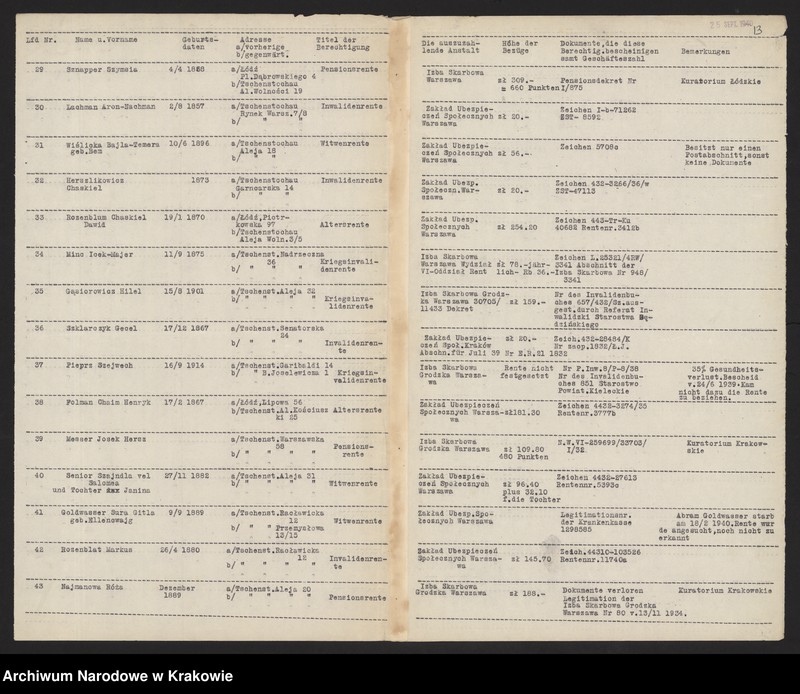 23 SEP. 1940
13
Lfd Nr. Name u.Vorname Geburts- Adresse Titel der
daten a/vorherige Berechtigung
b/gegenwärt.
29 Sznapper Szymsia 4/4 1888 a/Łódź Pensionsrente
Pl.Dąbrowskiego 4
b/Tschenstochau
Al.Wolności 19
30 Lachman Aron-Nachman 2/8 1857 a/Tschenstochau Invalidenrente
Rynek Warsz.7/8
b/ " "
31 Wiślicka Bajla-Temera 10/6 1896 a/Tschenstochau Witwenrente
geb.Bem Aleja 18
b/ " "
32 Herszlikowicz 1873 a/Tschenstochau Invalidenrente
Chaskiel Garncarska 14
b/ " "
33 Rozenblum Chaskiel 19/1 1870 a/Łódź,Piotr-
Dawid kowska 97 Altersrente
b/Tschenstochau
Aleja Woln.3/5
34 Minc Icek-Majer 11/9 1875 a/Tschenst.Nadrzeczna
36 Kriegsinvali-
b/ " " " denrente
35 Gąsiorowicz Hilel 15/8 1901 a/Tschenst.Aleja 32
b/ " " " Kriegsinva-
lidenrente
36 Szklarczyk Gecel 17/12 1867 a/Tschenst.Senatorska
24
b/ " " " Invalidenren-
te
37 Pieprz Szejwech 16/9 1914 a/Tschenst.Garibaldi 14
b/ " B.Joselewicza 1 Kriegsin-
validenrente
38 Folman Chaim Henryk 17/2 1867 a/Łódź,Lipowa 56
b/Tschenst.Al.Kościusz Altersrente
ki 25
39 Messer Josek Hersz a/Tschenst.Warszawska
58 Pensions-
b/ " " " rente
40 Senior Szajndla vel 27/11 1882 a/Tschenst.Aleja 31
Salomea b/ " " " Witwenrente
und Tochter Janina
41 Goldwasser Sura Gitla 9/9 1889 a/Tschenst.Racławicka
geb.Ellenowajg 12 Witwenrente
b/ " " Przemysłowa
13/15
42 Rozenblat Markus 26/4 1880 a/Tschenst.Racławicka
12 Invalidenren-
b/ " " " te
43 Najmanowa Róża Dezember a/Tschenst.Aleja 20
1889 b/ " " " Pensionsrente
Die auszuzah- Höhe der Dokumente,die diese
lende Anstalt Bezüge Berechtig.bescheinigen Bemerkungen
samt Geschäftszahl
Izba Skarbowa
Warszawa zł 309.- Pensionsdekret Nr Kuratorium Łódzkie
= 660 Punkten I/875
Zakład Ubezpie- Zeichen I-b-71262
czeń Społecznych zł 20.- ZST- 8592
Warszawa
Zakład Ubezpie- Zeichen 5708c Besitzt nur einen
czeń Społecznych zł 56.- Postabschnitt,sonst
Warszawa keine Dokumente
Zakład Ubezp. Zeichen 432-3266/36/w
Społeczn.War- zł 20.- ZST-47113
szawa
Zakład Ubezp. Zeichen 443-Tr-Ku
Społecznych zł 254.20 40682 Rentenr.3412b
Warszawa
Izba Skarbowa Zeichen L.25321/4EW/
Warszawa Wydział zł 78.-jähr- 3341 Abschnitt der
VI-Oddział Rent lich- Rb 36.-Izba Skarbowa Nr 948/
3341
Izba Skarbowa Grodz- Nr des Invalidenbu-
ka Warszawa 30705/ zł 159.- ches 657/432/Sz.aus-
11433 Dekret gest.durch Referat In-
walidzki Starostwa Bę-
dzińskiego
Zakład Ubezpie- zł 20.- Zeich.432-28484/K
czeń Społ.Kraków Nr zaop.1832/Ł.J.
Abschn.für Juli 39 Nr E.R.21 1832
Izba Skarbowa Rente nicht Nr P.Inw.8/P-8/38 35% Gesundheits-
Grodzka Warsza- festgesetzt Nr des Invalidenbu- verlust.Bescheid
wa ches 851 Starostwo v.24/6 1939.Kam
Powiat.Kieleckie nicht dazu die Rente
zu beziehen.
Zakład Ubezpieczeń Zeichen 4432-3274/35
Społecznych Warsza-zł181.30 Rentenr.3777b
wa
Izba Skarbowa N.W.VI-259699/33703/ Kuratorium Krakow-
Grodzka Warszawa zł 109.80 I/32 skie
480 Punkten
Zakład Ubezpie- Zeichen 4432-27613
czeń Społecznych zł 96.40 Rentennr.5393c
Warszawa plus 32.10
f.die Tochter
Zakład Ubezp.Spo- Legitimationsnr. Abram Goldwasser starb
łecznych Warszawa der Krankenkasse am 18/2 1940.Rente wur
1298585 de angesucht,noch nicht zu
erkannt
Zakład Ubezpieczeń Zeich.44310-103526
Społecznych Warsza- zł 145.70 Rentennr.11740a
wa
Izba Skarbowa
Grodzka Warszawa zł 188.- Dokumente verloren Kuratorium Krakowskie
Legitimation der
Izba Skarbowa Grodzka
Warszawa Nr 80 v.13/11 1934.
Archiwum Narodowe w Krakowie